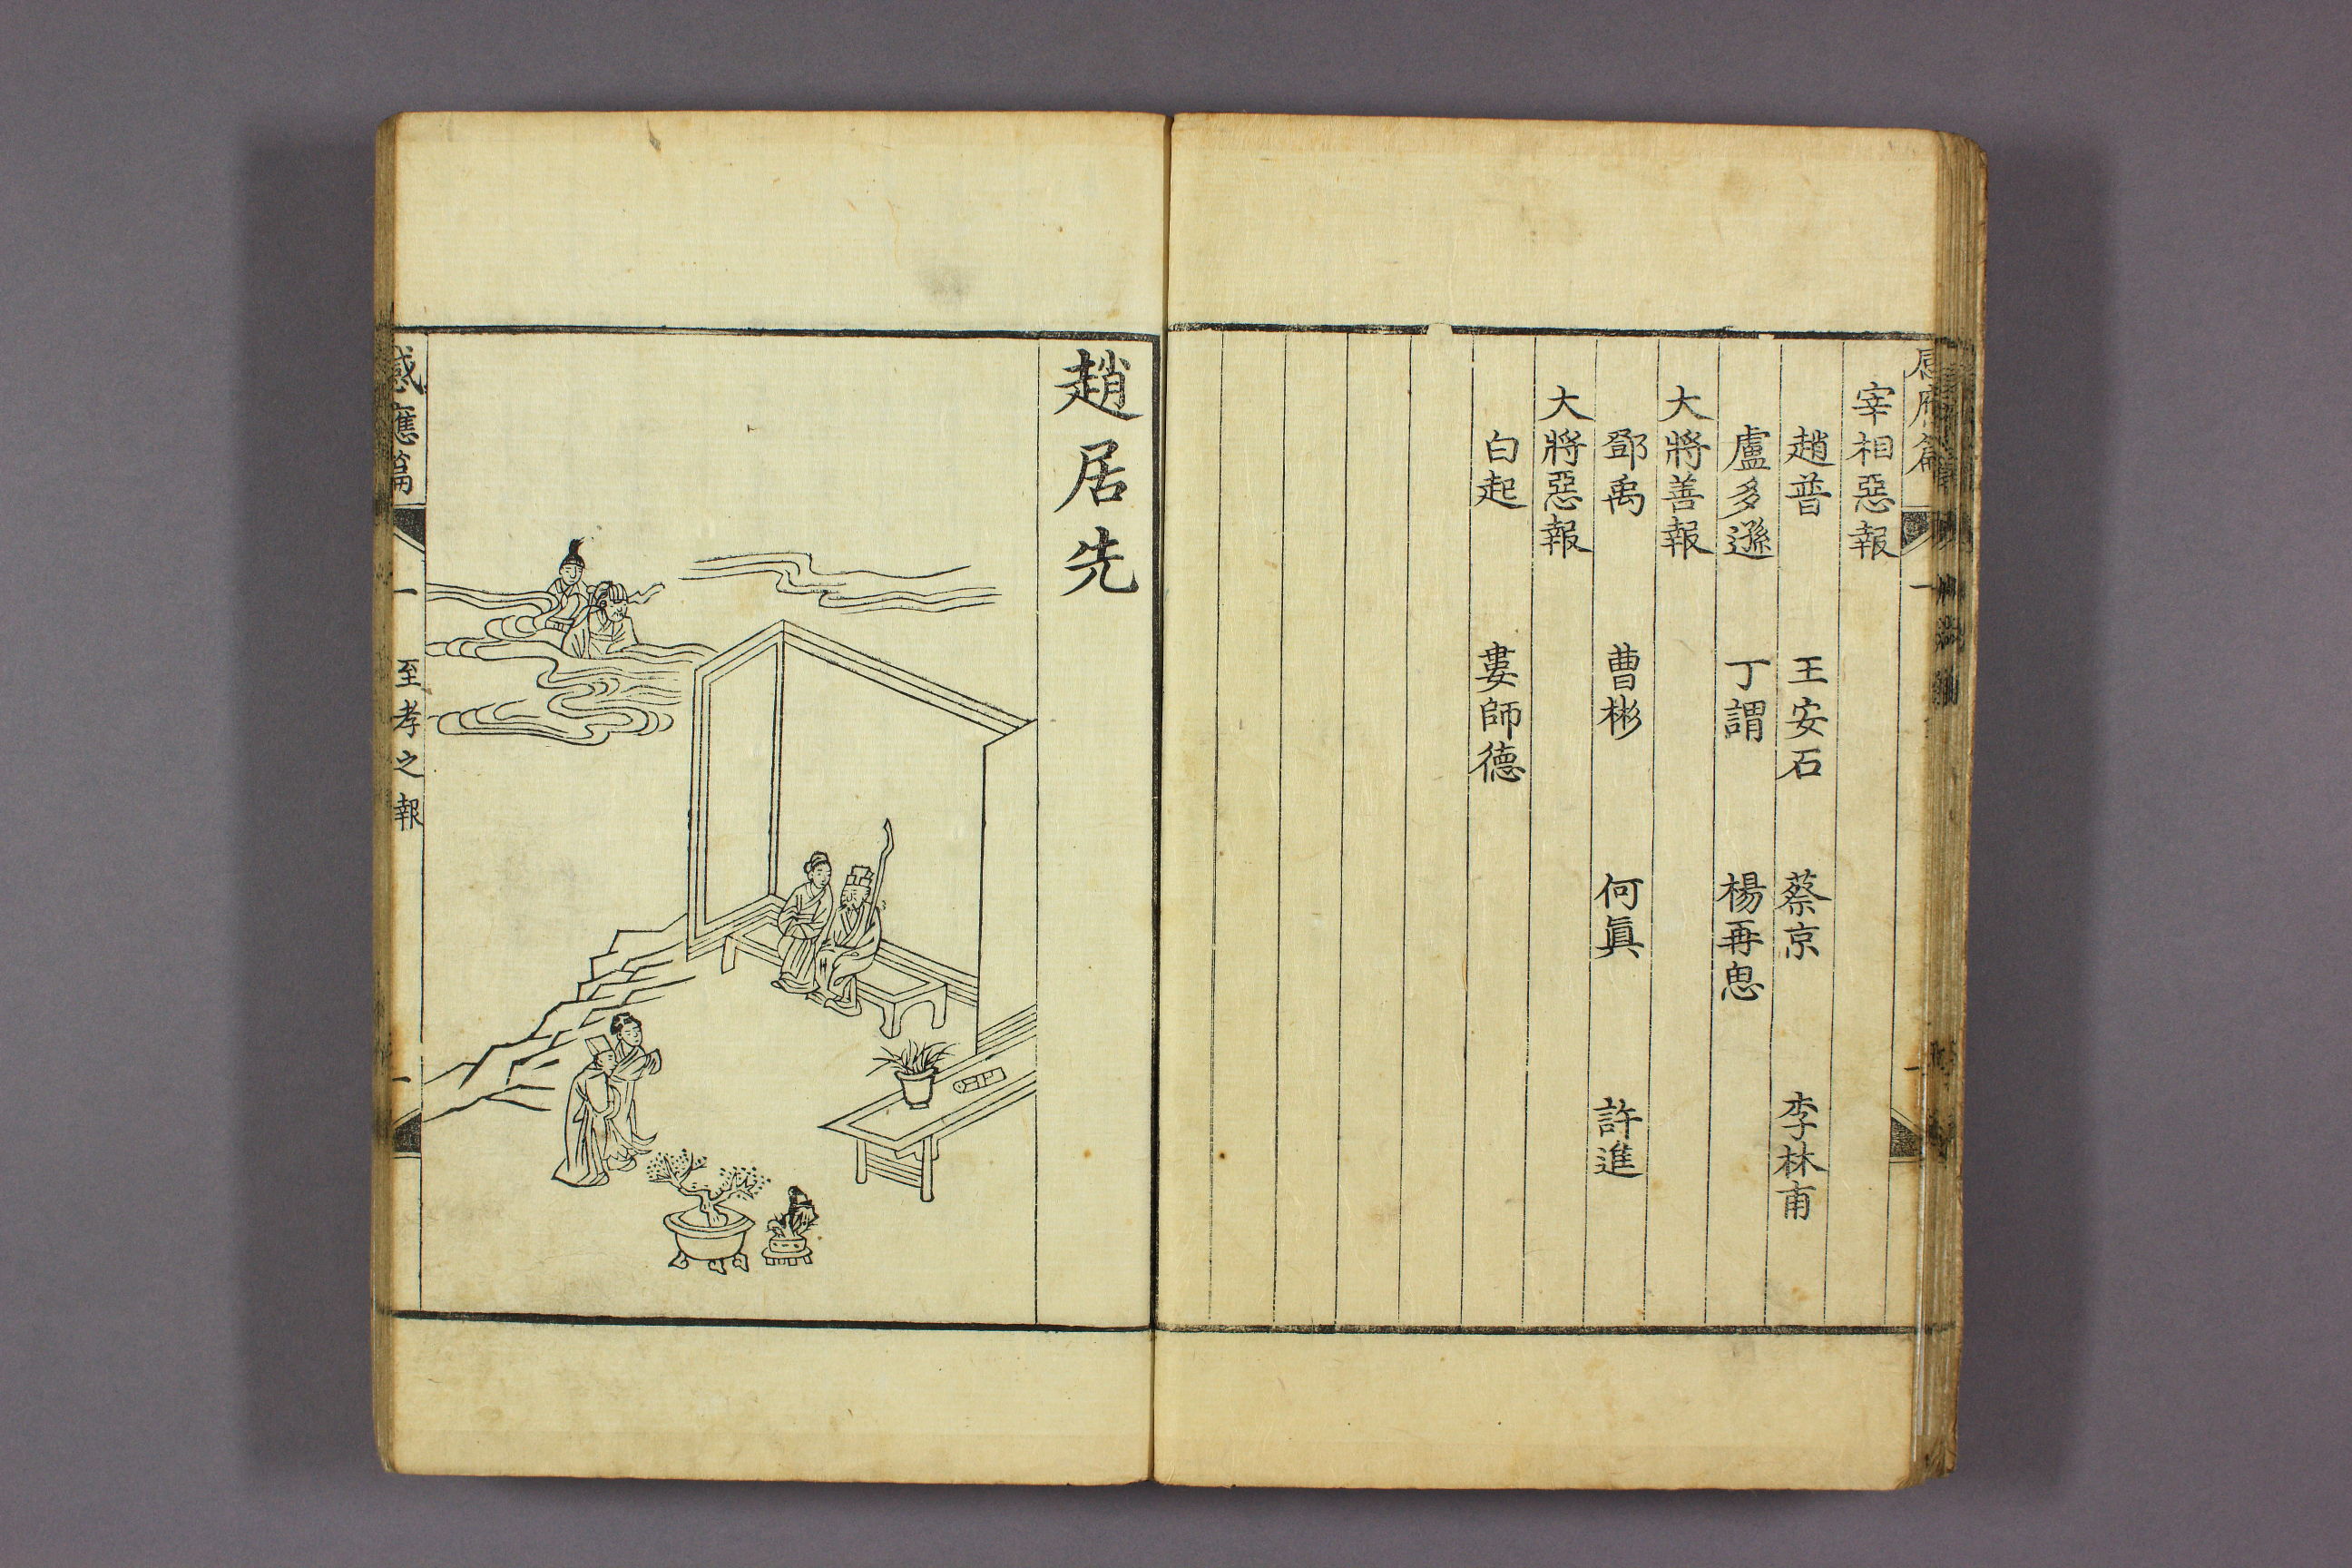 感應篇 一
宰相惡報
趙普 王安石 蔡京 李林甫
盧多遜 丁謂 楊再思
大將善報
鄧禹 曹彬 何眞 許進
大將惡報
白起 婁師德
趙居先
感應篇 一 至孝之報 一